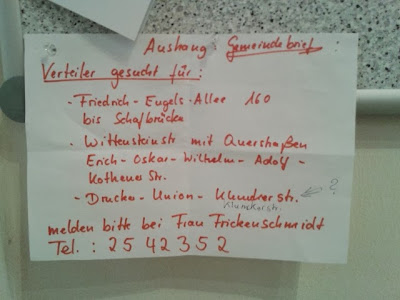 Aushang: Gemeindebrief
Verteiler gesucht für:
- Friedrich-Engels-Allee 160
bis Schafbrücke
- Wittensteinstr mit Querstraßen
Erich-Oskar-Wilhelm-Adolf-
Kothenerstr.
- Drucker-Union-Klundrerstr. ?
Klunckerstr.
melden bitte bei Frau Frickenschmidt
Tel.: 2542352